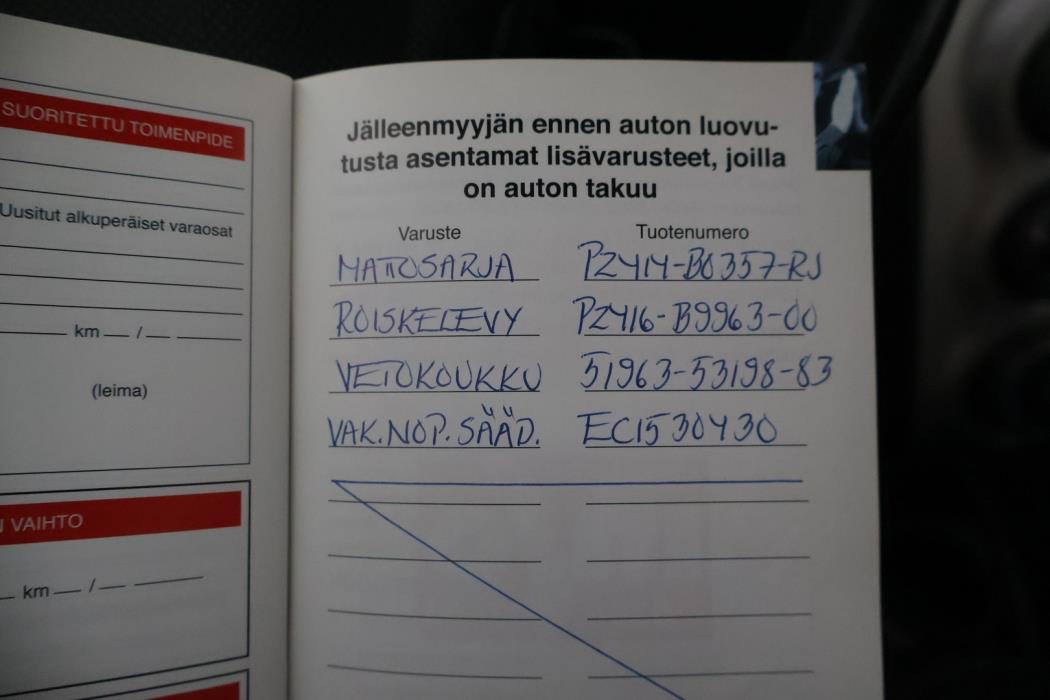 SUORITETTU TOIMENPIDE
Uusitut alkuperäiset varaosat
km / 
(leima)
VAIHTO
km /
Jälleenmyyjän ennen auton luovu-
tusta asentamat lisävarusteet, joilla
on auton takuu
Varuste Tuotenumero
MATTOSARJA PZ414-B0357-RJ
ROISKELEVY PZ416-B9963-00
VETOKOUKKU 51963-53198-83
VAK.NOP.SÄÄD. EC1530430